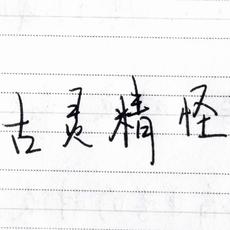 古灵精怪